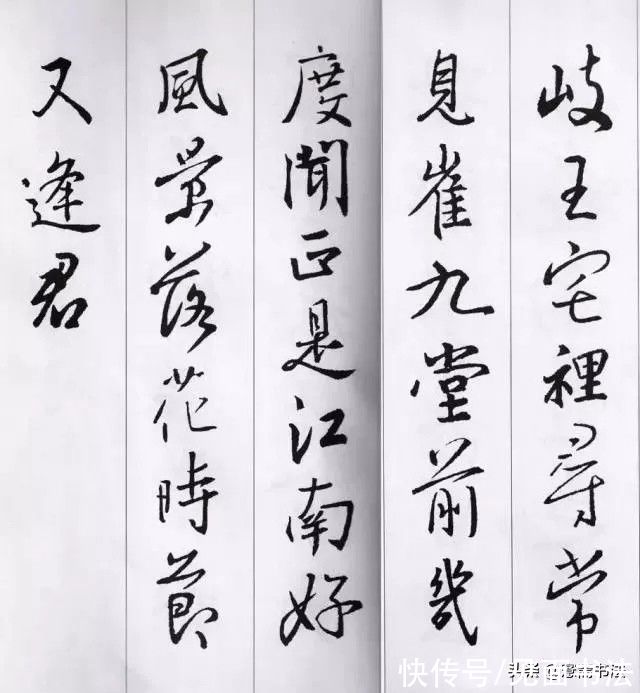 岐王宅裡尋常
見崔九堂前幾
度聞正是江南好
風景落花時節
又逢君
快传号/见面书法